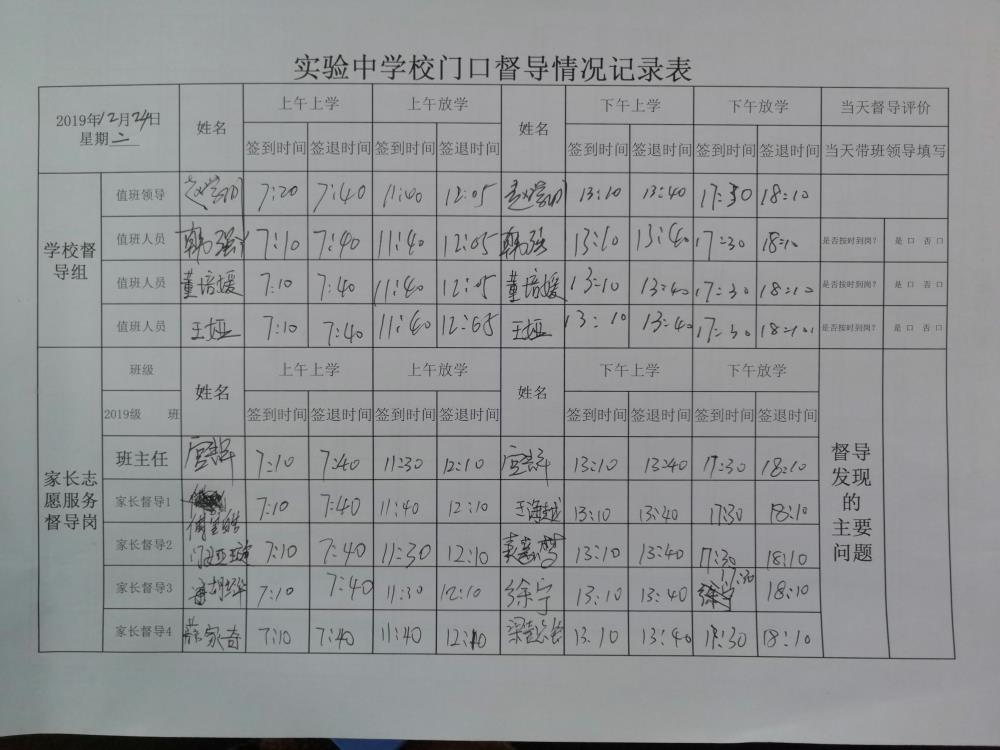 实验中学校门口督导情况记录表
2019年12月24日
星期二
姓名
上午上学
上午放学
姓名
下午上学
下午放学
当天督导评价
签到时间 签退时间 签到时间 签退时间 签到时间 签退时间 签到时间 签退时间 当天带班领导填写
学校督导组
值班领导 7:20 7:40 11:40 12:05 13:10 13:40 17:30 18:10
值班人员 韩强 7:10 7:40 11:40 12:05 韩强 13:10 13:40 17:30 18:10 是否按时到岗? 是 口 否 口
值班人员 董培媛 7:10 7:40 11:40 12:05 董培媛 13:10 13:40 17:30 18:10 是否按时到岗? 是 口 否 口
值班人员 王娅 7:10 7:40 11:40 12:05 王娅 13:10 13:40 17:30 18:10 是否按时到岗? 是 口 否 口
班级
姓名
上午上学
上午放学
姓名
下午上学
下午放学
2019级 班 签到时间 签退时间 签到时间 签退时间 签到时间 签退时间 签到时间 签退时间
家长志愿服务督导岗
班主任 7:10 7:40 11:30 12:10 13:10 13:40 17:30 18:10
家长督导1 7:10 7:40 11:40 12:10 13:10 13:40 17:30 18:10
家长督导2 7:10 7:40 11:30 12:10 13:10 13:40 17:30 18:10
家长督导3 7:10 7:40 11:30 12:10 徐宁 13:10 13:40 17:30 徐宁 18:10
家长督导4 薛家奇 7:10 7:40 11:40 12:10 13.10 13:40 17:30 18:10
督导
发现
的
主要
问题